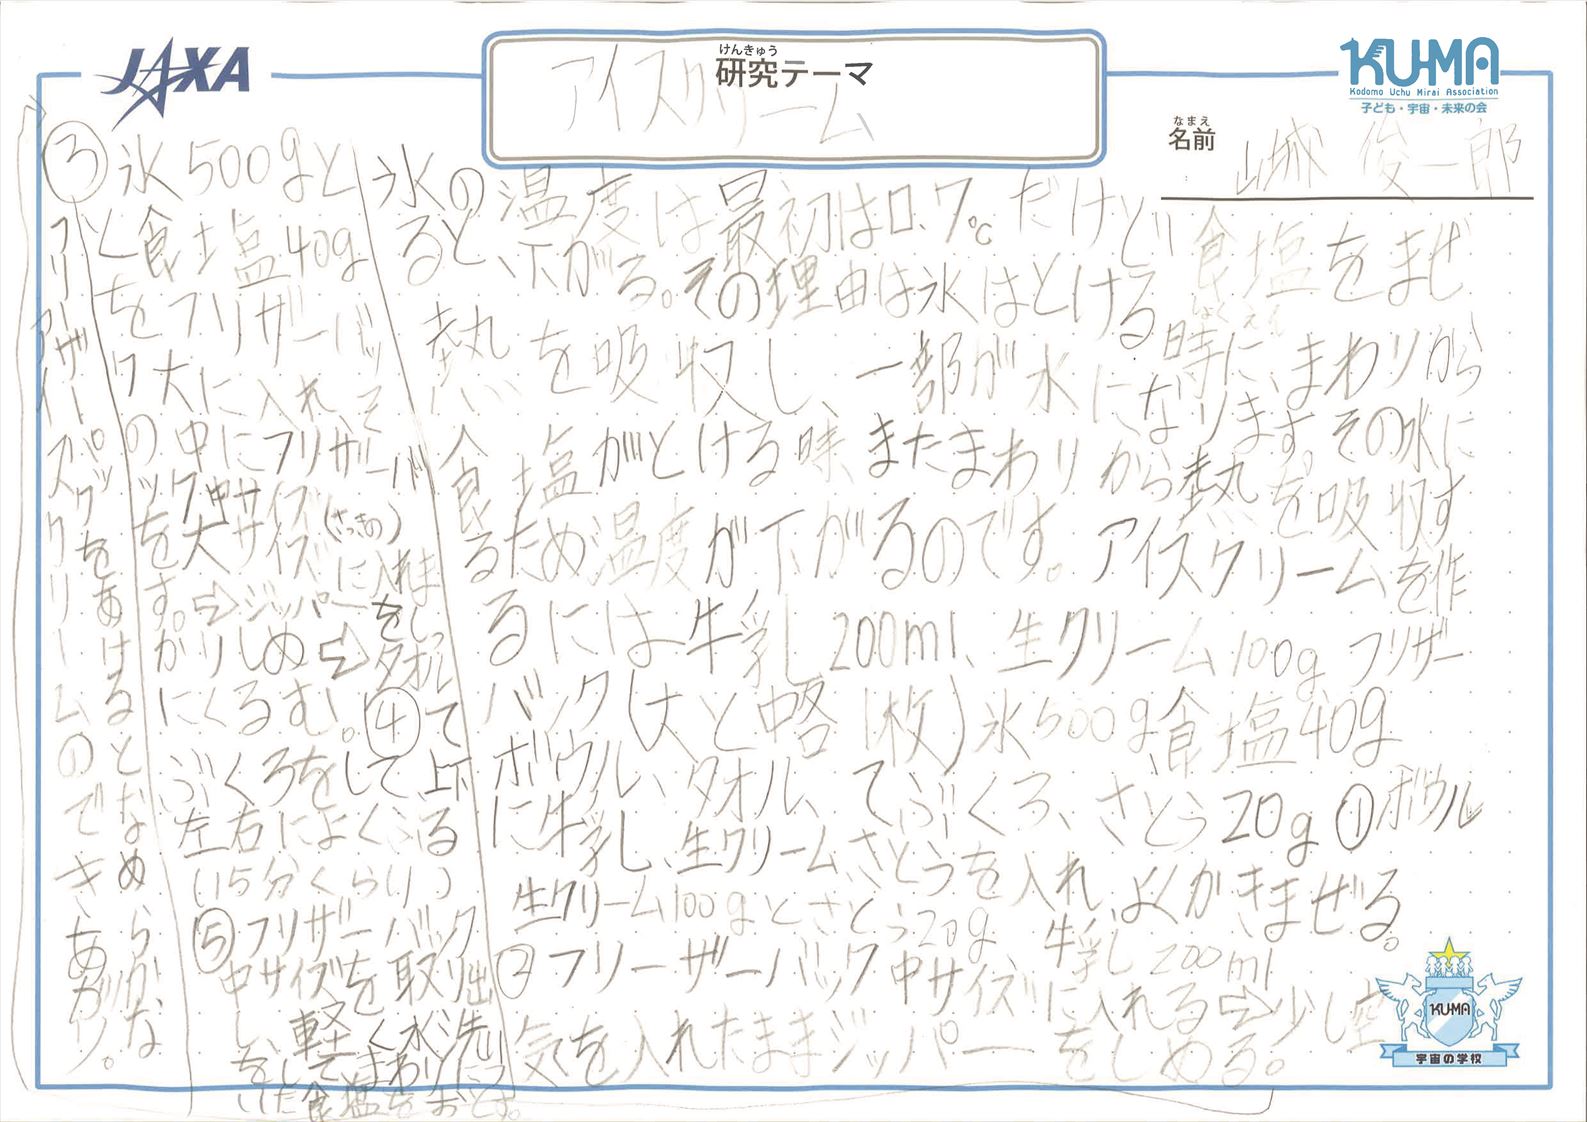 JAXA
けんきゅう
研究テーマ
アイスクリーム
KU-MA
Kodomo Uchu Mirai Association
子ども・宇宙・未来の会
なまえ
名前
山城 俊一郎
氷の温度は最初は0.7℃だけど食塩をまぜ
しょくえん
ると、下がる。その理由は氷はとける時に、まわりから
熱を吸収し、一部が水になります。その水に
食塩がとける時またまわりから熱を吸収す
るため温度が下がるのです。アイスクリームを作
るには牛乳200ml、生クリーム100gフリザー
バック(大と中各1枚)氷500g食塩40g
ボウル、タオル、てぶくろ、さとう20g①ボウル
に牛乳、生クリーム、さとうを入れ、よくかきまぜる。
生クリーム100gとさとう20g 牛乳200ml
②フリーザーバック中サイズに入れる⇨少し空
気を入れたままジッパーをしめる。
③氷500gと
と食塩40g
をフリザーバッ
ク大に入れ、そ
の中にフリザーバ
ック中サイズ
を大サイズ(さっきの)に入れま
す。⇨ジッパーをしっ
かりしめ⇨タオル
にくるむ。④て
ぶくろをして上下
左右によくふる
(15分くらい)
⑤フリザーバック
中サイズを取り出
し、軽く水洗い
をしてまわりにつ
いた食塩をおとす。
フリーザーパックをあけるとなめらかな
アイスクリームのできあがり。
KU-MA
宇宙の学校